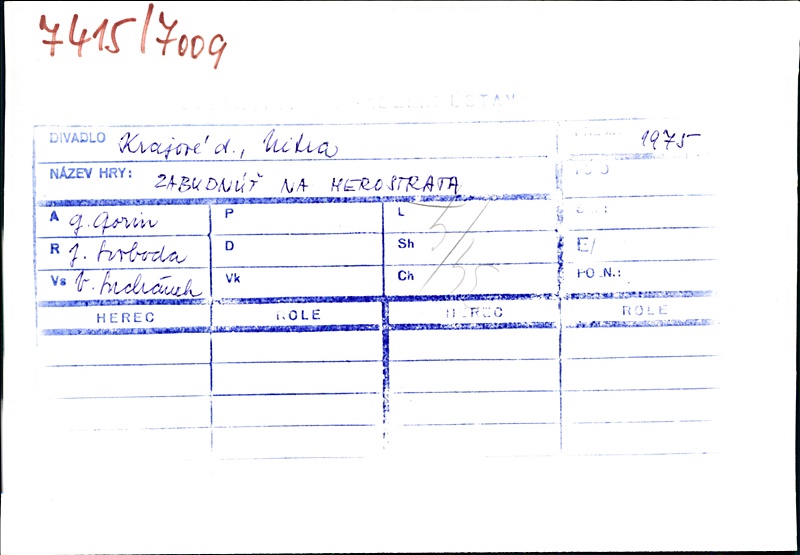 7415/7009
DIVADLO Krajové d., Nitra 1975
NÁZEV HRY: ZABUDNÚŤ NA HEROSTRATA
A G. Gorin P L
R J. Svoboda D Sh E/
Vs V. Suchánek Vk Ch
HEREC ROLE HEREC ROLE